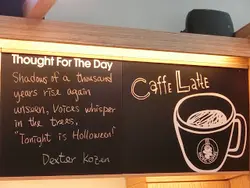 Thought For The Day
Shadows of a thousand
years rise again
unseen, Voices whisper
in the trees,
"Tonight is Halloween!"
Dexter Kozen
Caffe Latte